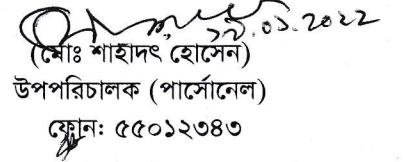 ১৮.০১.২০২২
(মোঃ শাহাদৎ হোসেন)
উপপরিচালক (পার্সোনেল)
ফোন: ৫৫০১২৩৪৩